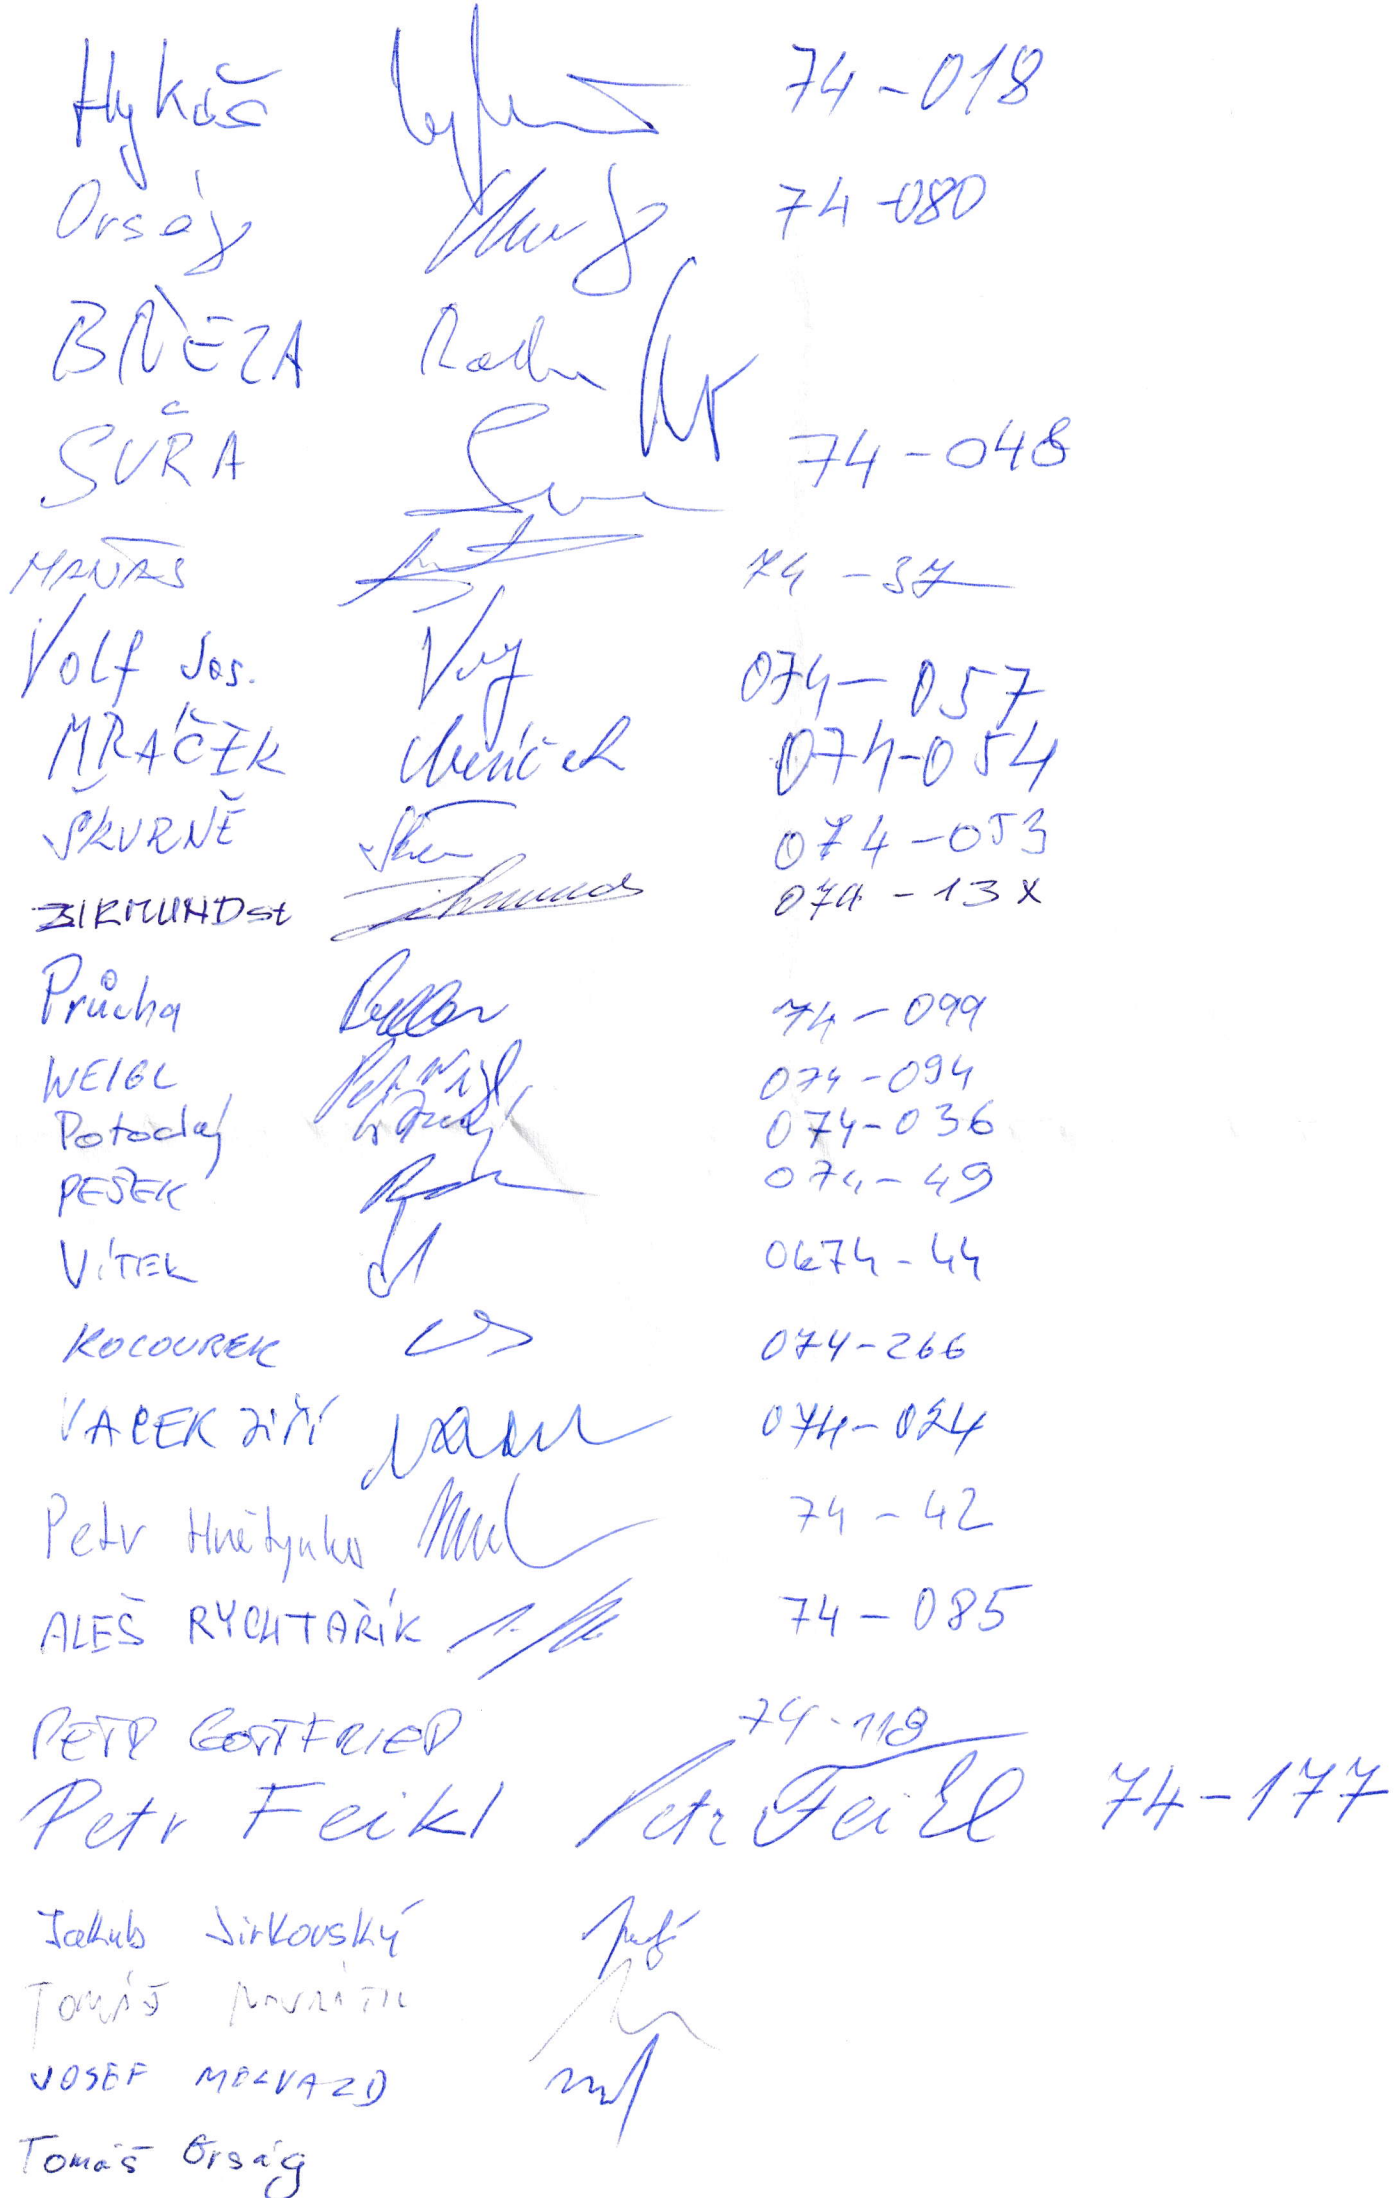 Hykáš 74-018
Orság 74-080
BŘEZA Radim
SUŘA 74-048
MAŇAS 74-37
Volf Jos. 074-057
MRÁČEK Mráček 074-054
ŠKVRNĚ 074-053
ZIKMUND st Zikmund 074-13X
Průcha 74-099
WEIGL Petr Weigl 074-094
Potocký 074-036
PEŠEK 074-49
VÍTEK 0674-44
KOCOUREK 074-266
VACEK JIŘÍ 074-024
Petr Hnětynka 74-42
ALEŠ RYCHTAŘÍK 74-085
PETR GOTTFRIED 74-118
Petr Feikl Petr Feikl 74-177
Jakub Jirkovský
TOMÁŠ NAVRÁTIL
JOSEF
Tomáš Orság